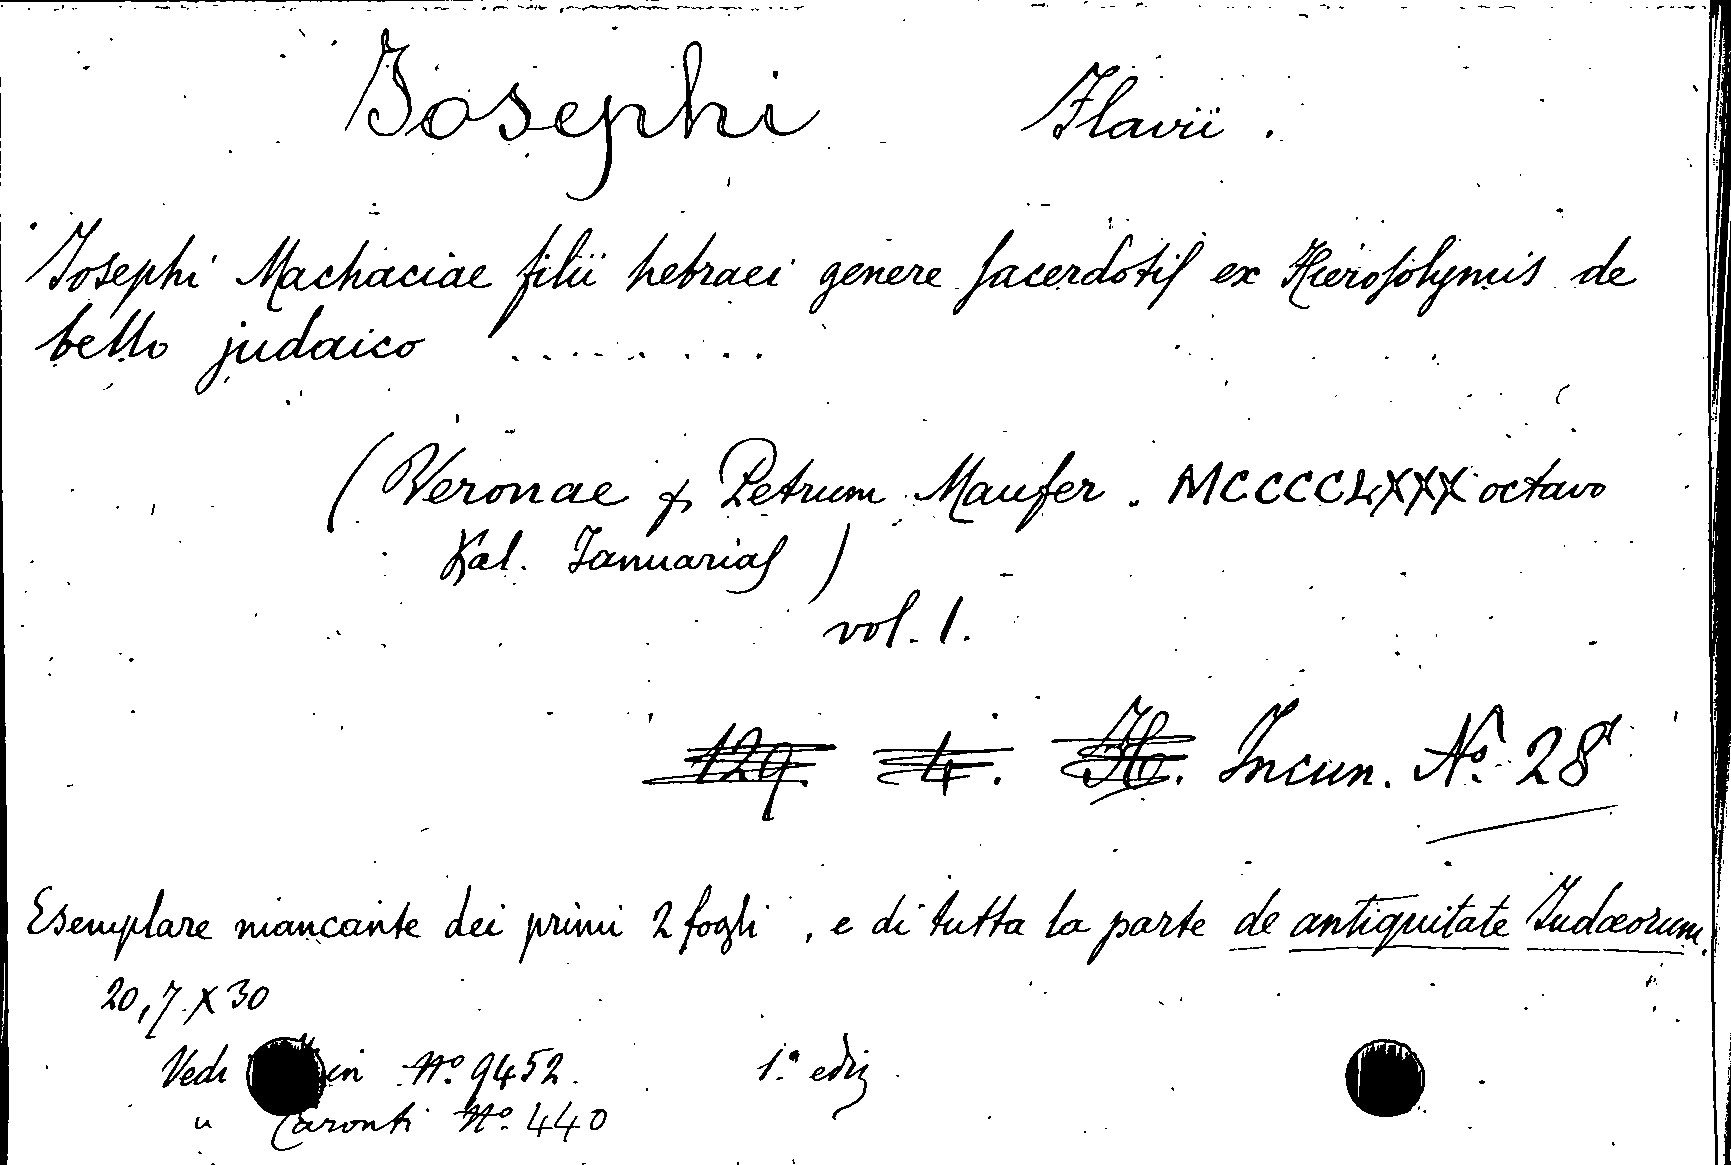 Josephi Flavii.
Josephi Machaciae filii hebraei genere sacerdotis ex Hierosolymis de
bello judaico ........
(Veronae p Petrum Maufer. MCCCCLXXX octavo
Kal. Januarias)
vol. 1.
129. 4. Incun. Nº 28
Esemplare mancante dei primi 2 fogli, e di tutta la parte de antiquitate Judæorum.
20,7 x 30
Vedi Nº 9452. 1.ª ediz
" Caronti Nº 440